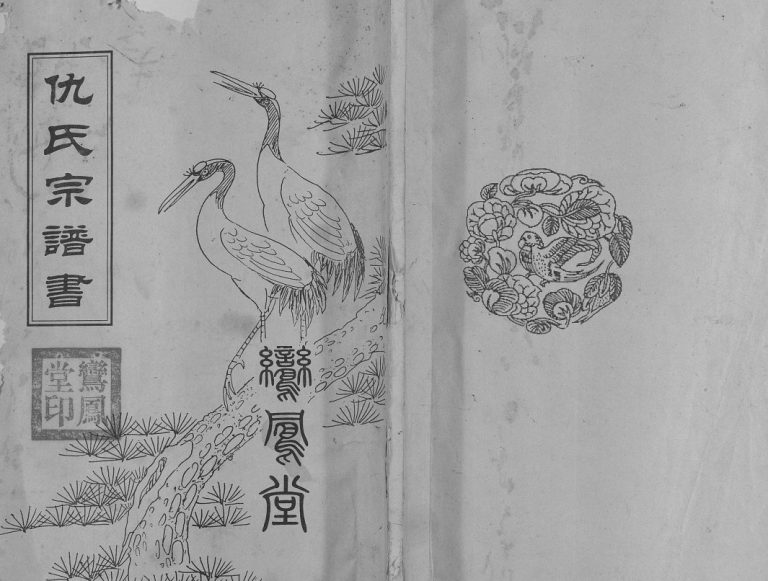 仇氏宗譜書
鸞鳳堂印
鸞鳳堂